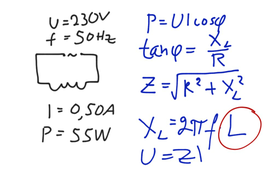 U=230V
f=50Hz
~
I=0,50A
P=55W
P=UIcosφ
tanφ=X_L/R
Z=√R²+X_L²
X_L=2πfL
U=ZI